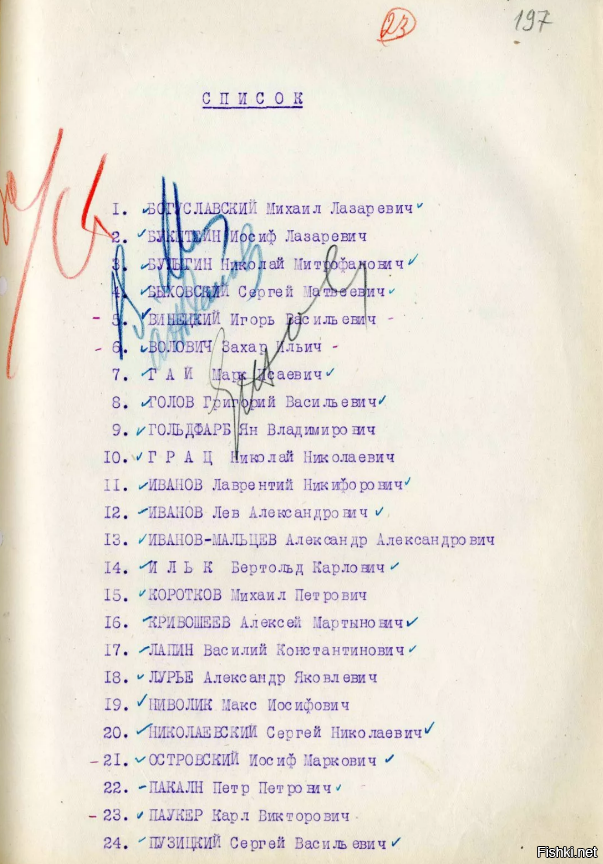 23
197
СПИСОК
1. БОГУСЛАВСКИЙ Михаил Лазаревич
2. БУКШТЕЙН Иосиф Лазаревич
3. БУЛЫГИН Николай Митрофанович
4. БЫХОВСКИЙ Сергей Матвеевич
5. ВИНЕЦКИЙ Игорь Васильевич
6. ВОЛОВИЧ Захар Ильич
7. ГАЙ Марк Исаевич
8. ГОЛОВ Григорий Васильевич
9. ГОЛЬДФАРБ Ян Владимирович
10. ГРАЦ Николай Николаевич
11. ИВАНОВ Лаврентий Никифорович
12. ИВАНОВ Лев Александрович
13. ИВАНОВ-МАЛЬЦЕВ Александр Александрович
14. ИЛЬК Бертольд Карлович
15. КОРОТКОВ Михаил Петрович
16. КРИВОШЕЕВ Алексей Мартынович
17. ЛАПИН Василий Константинович
18. ЛУРЬЕ Александр Яковлевич
19. НИВОЛИК Макс Иосифович
20. НИКОЛАЕВСКИЙ Сергей Николаевич
21. ОСТРОВСКИЙ Иосиф Маркович
22. ПАКАЛН Петр Петрович
23. ПАУКЕР Карл Викторович
24. ПУЗИЦКИЙ Сергей Васильевич
Fishki.net